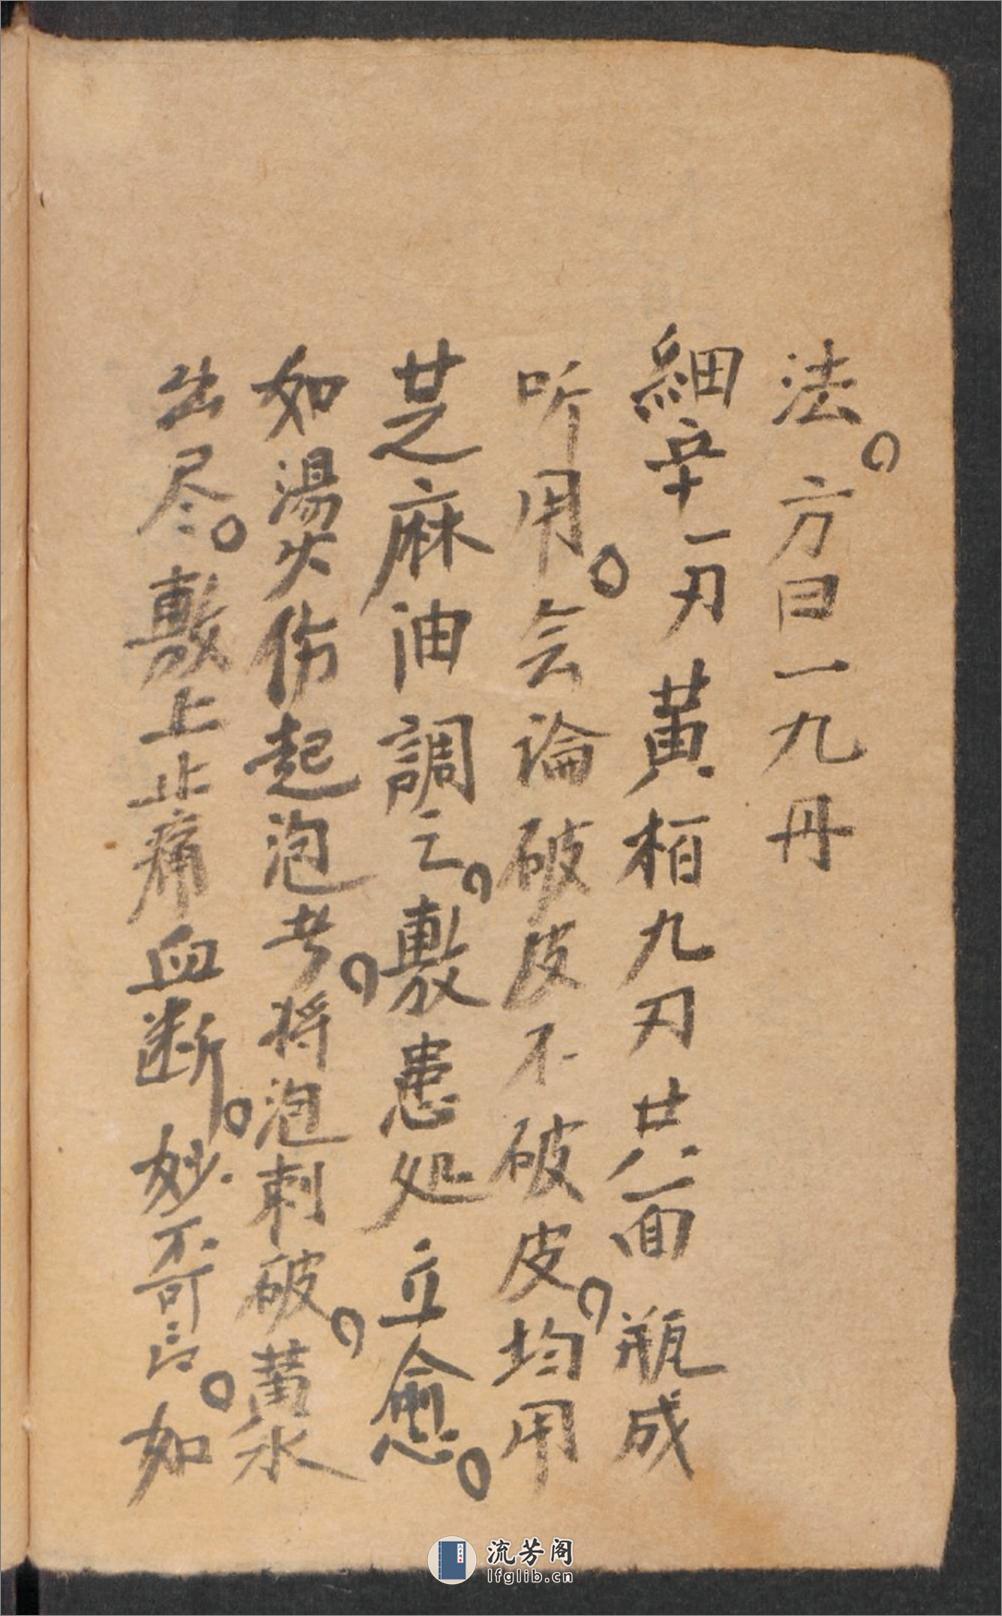 法。方曰一九丹
細辛一刃黄栢九刃共面瓶成
听用。会論破皮不破皮，均用
芝麻油調之，敷患処立愈。
如湯火伤起泡者，将泡刺破，黄水
出尽。敷上止痛血断。妙不可言。如
流芳阁
lfglib.cn